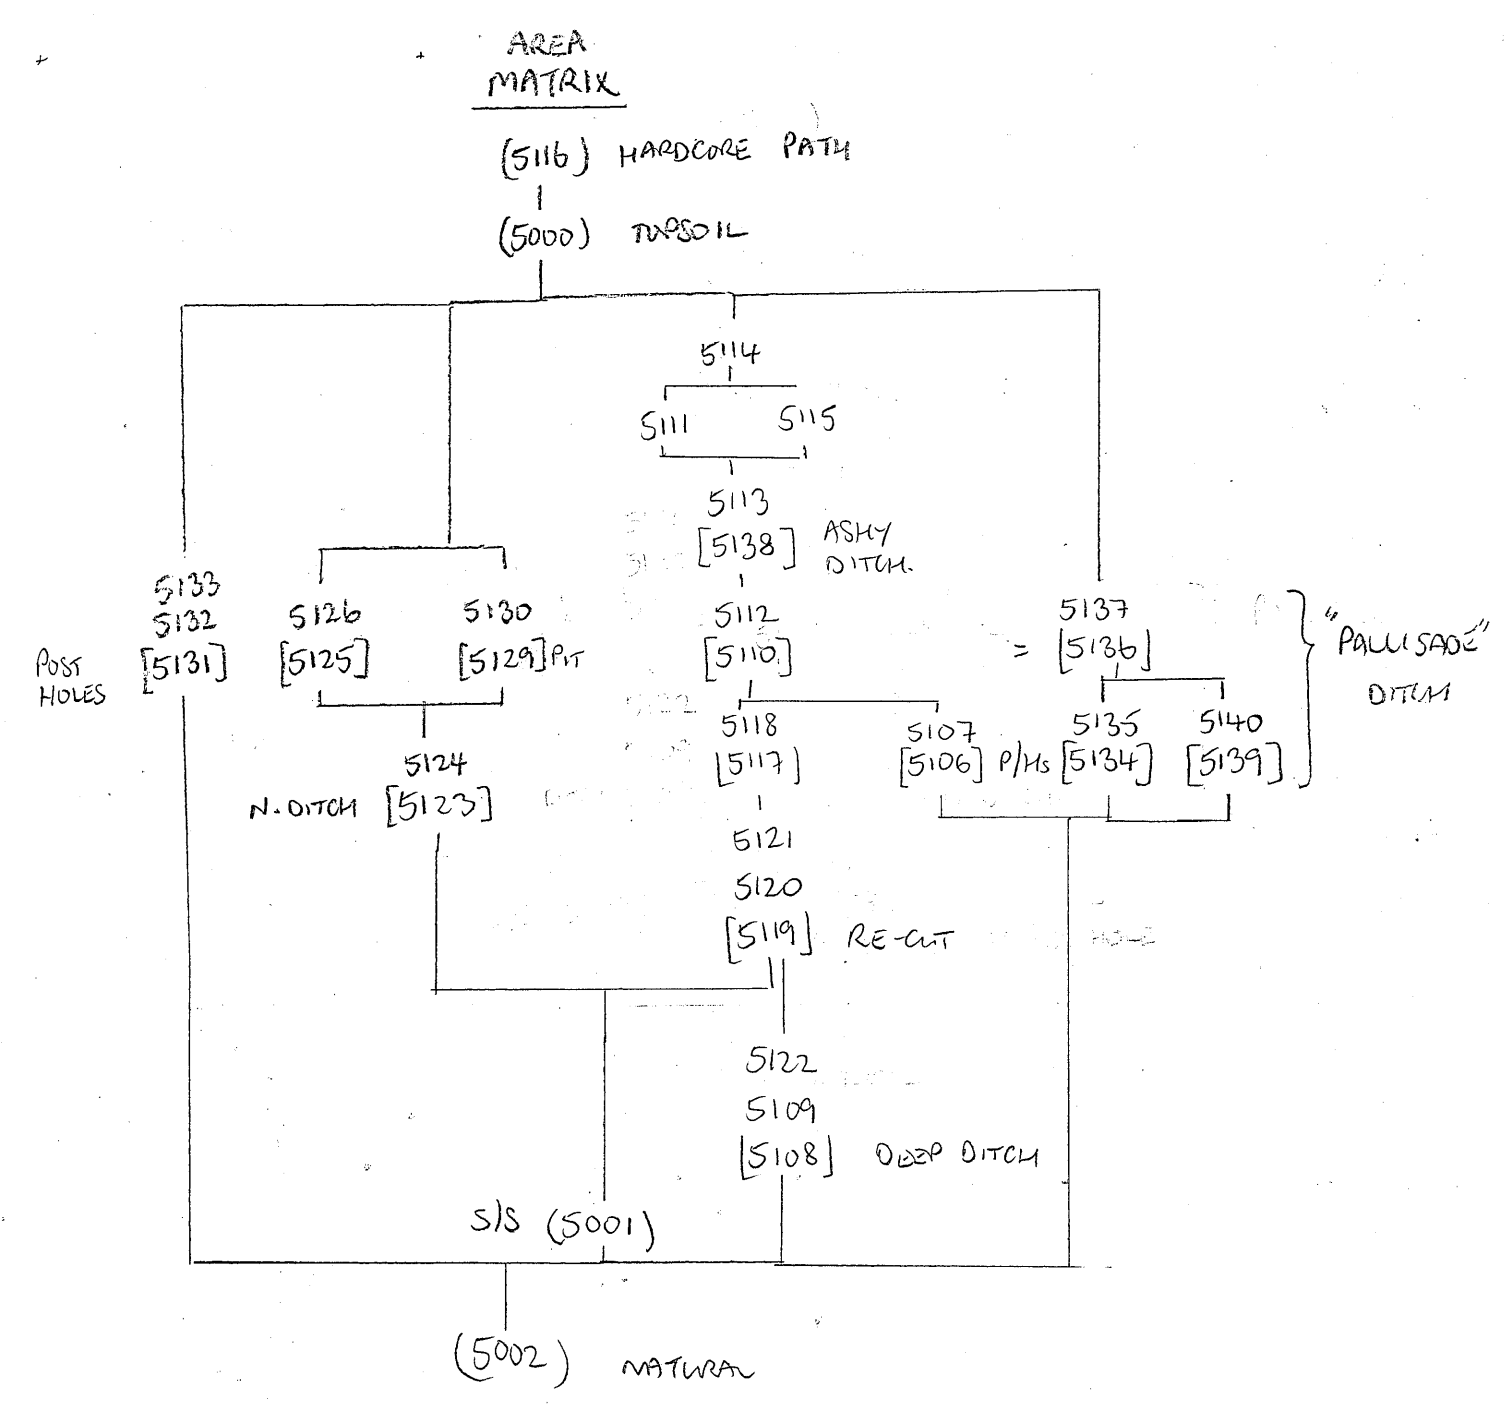 AREA
MATRIX
(5116) HARDCORE PATH
(5000) TOPSOIL
5114
5111 5115
5113
[5138] ASHY
DITCH.
5133
5132
[5131]
POST
HOLES
5126
[5125]
5130
[5129] PIT
5112
[5110]
=
5137
[5136]
"PALLISADE"
DITCH
5124
N. DITCH [5123]
5118
[5117]
5107
[5106] P/Hs
5135
[5134]
5140
[5139]
5121
5120
[5119] RE-CUT
5122
5109
[5108] DEEP DITCH
S/S (5001)
(5002) NATURAL